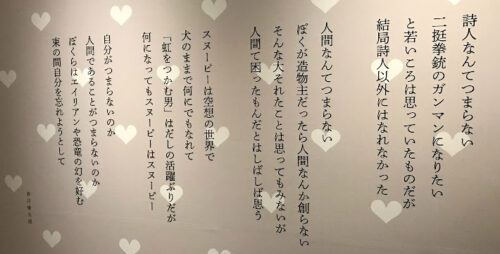 詩人なんてつまらない
二挺拳銃のガンマンになりたい
と若いころは思っていたものだが
結局詩人以外にはなれなかった
人間なんてつまらない
ぼくが造物主だったら人間なんか創らない
そんな大それたことは思ってもみないが
人間て困ったもんだとはしばしば思う
スヌーピーは空想の世界で
犬のままで何にでもなれて
「虹をつかむ男」はだしの活躍ぶりだが
何になってもスヌーピーはスヌーピー
自分がつまらないのか
人間であることがつまらないのか
ぼくらはエイリアンや恐竜の幻を好む
束の間自分を忘れようとして
谷川俊太郎